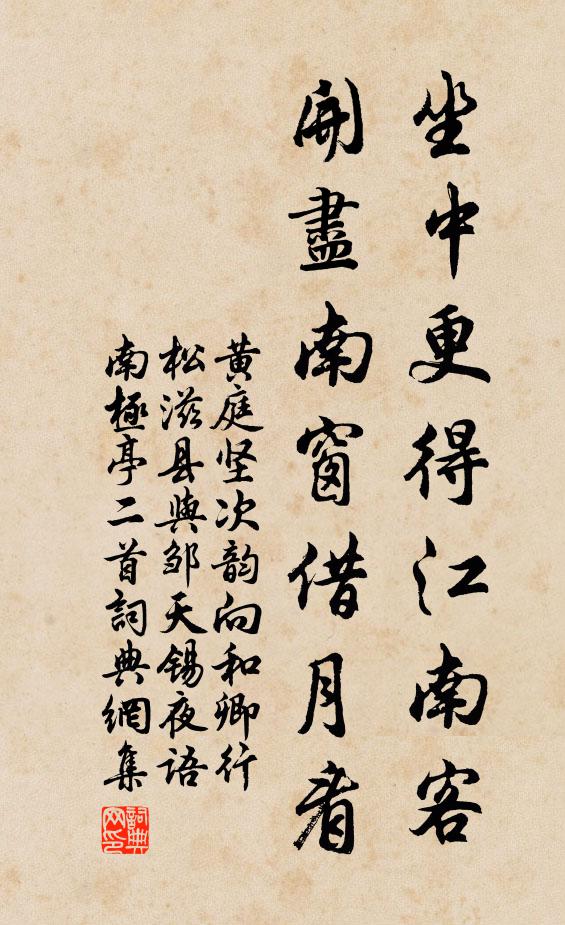 坐中更得江南客
開盡南窗借月看
黄庭坚次韵向和卿行
松滋县與邹天锡夜语
南極亭二首詞典網集
詞典网印